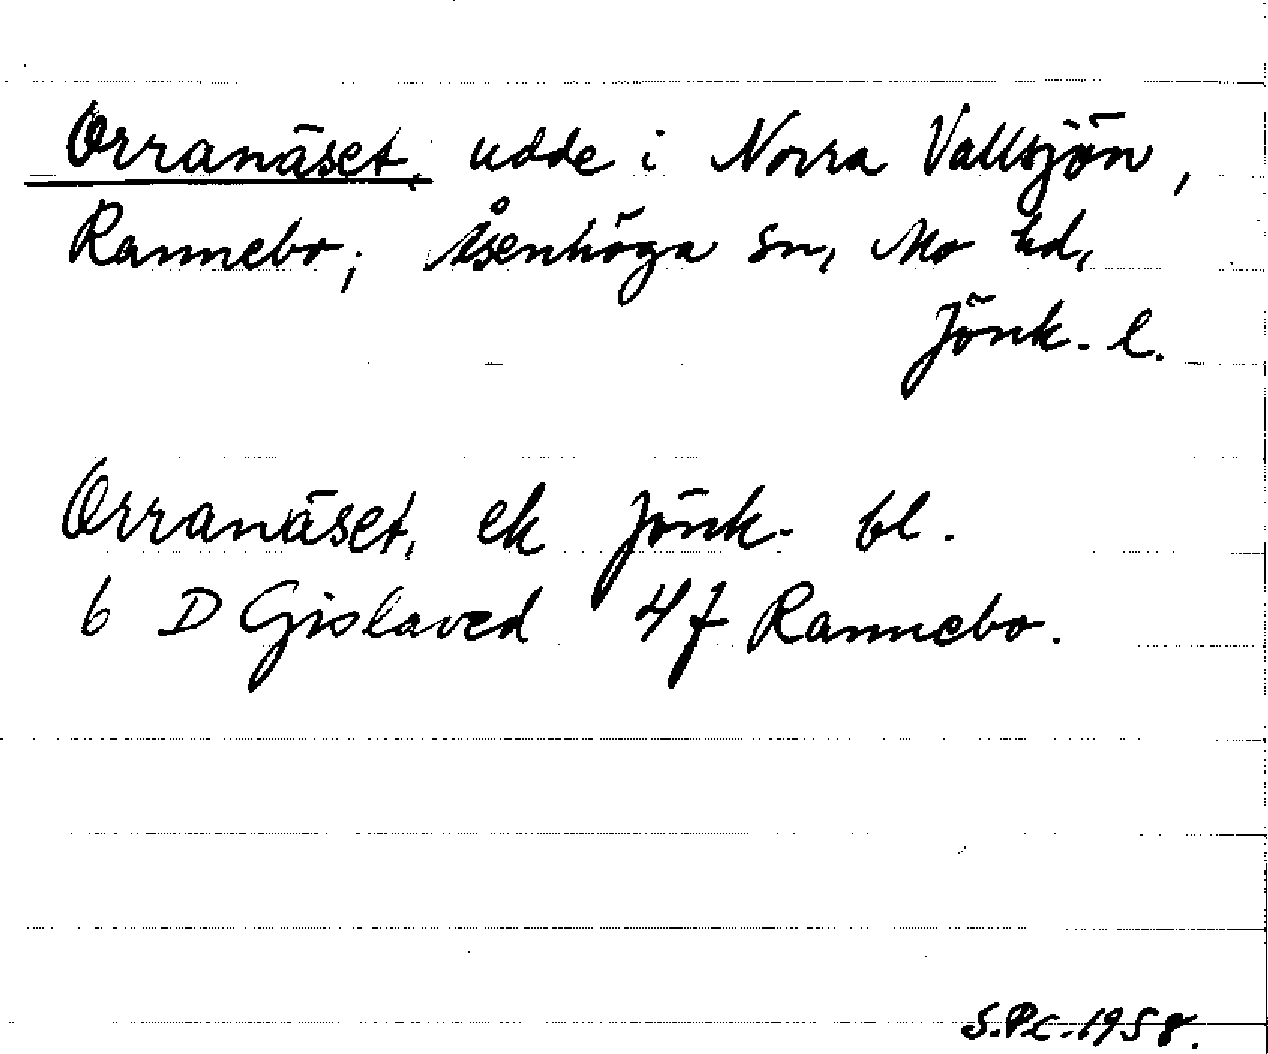 Orranäset, udde i Norra Vallsjön,
Rannebo, Åsenhöga sn, Mo hd,
Jönk. l.
Orranäset, ek Jönk. bl.
6 D Gislaved 4f Rannebo.
S.P.C. 1958.